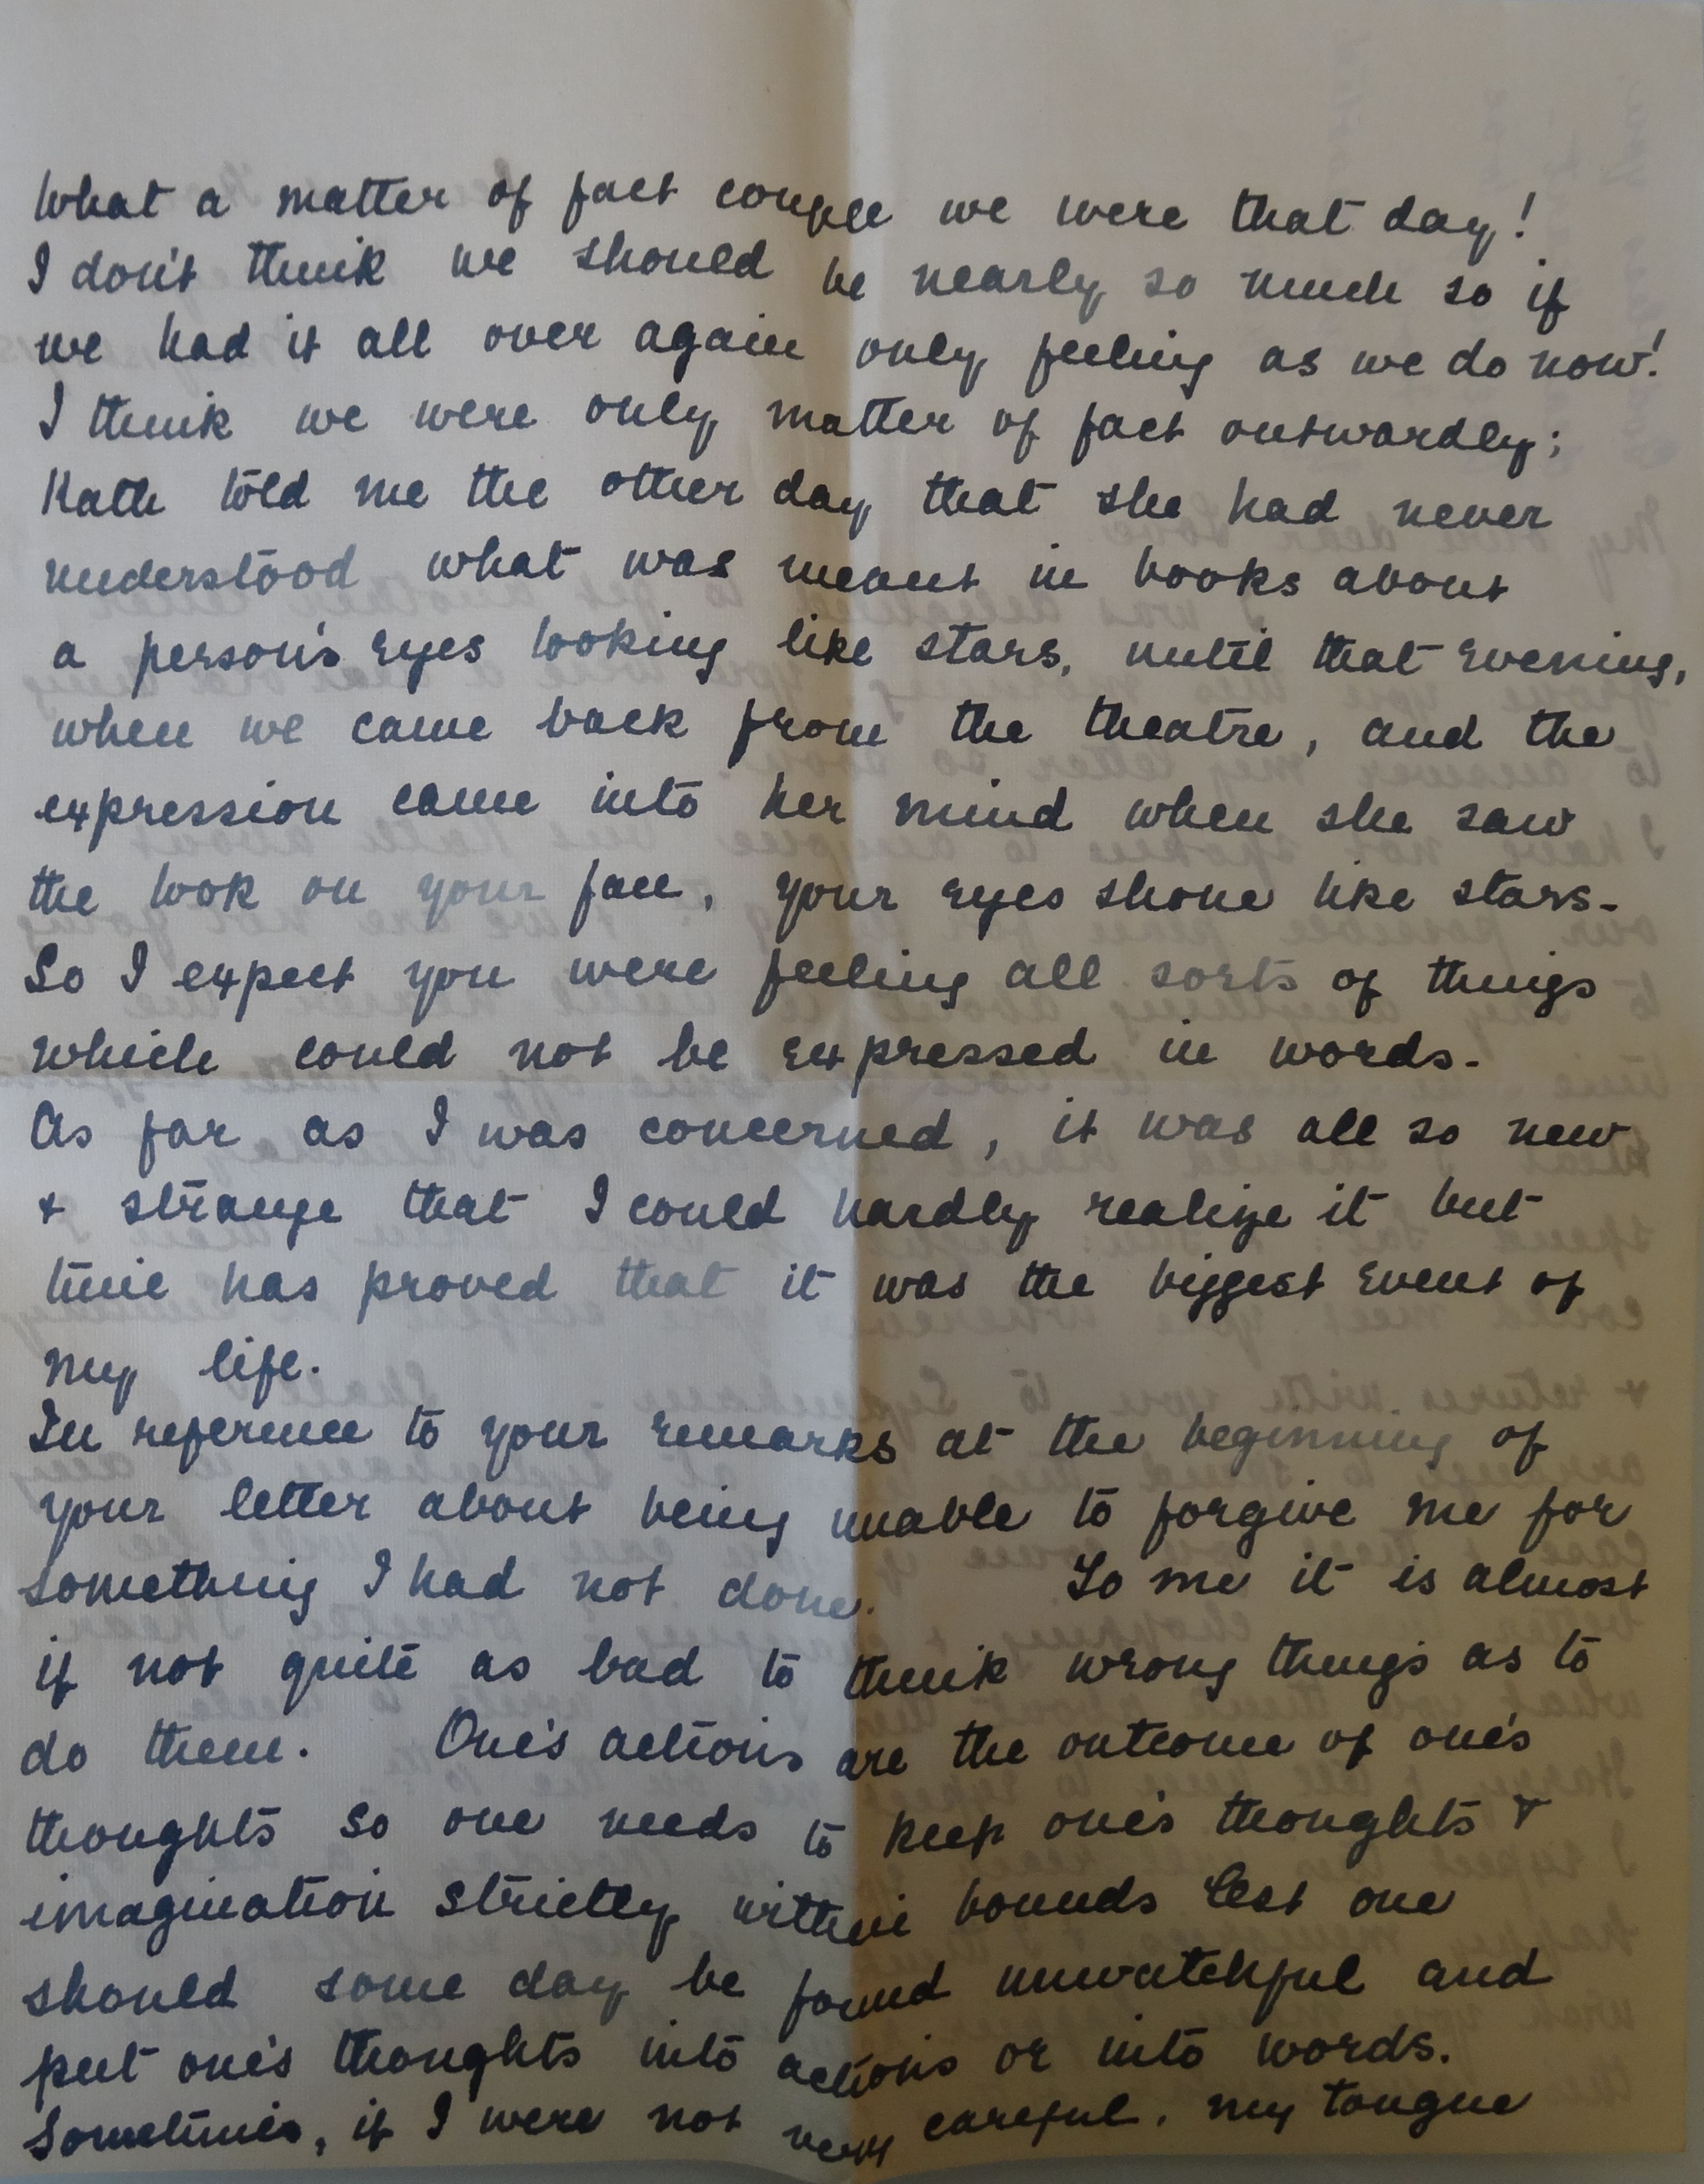 What a matter of fact couple we were that day!
I don't think we should be nearly so much so if
we had it all over again only feeling as we do now!
I think we were only matter of fact outwardly;
Kath told me the other day that she had never
understood what was meant in books about
a person's eyes looking like stars, until that evening,
when we came back from the theatre, and the
expression came into her mind when she saw
the look on your face, your eyes shone like stars-
So I expect you were feeling all sorts of things
which could not be expressed in words-
As far as I was concerned, it was all so new
& strange that I could hardly realize it but
time has proved that it was the biggest event of
my life.
In reference to your remarks at the beginning of
your letter about being unable to forgive me for
something I had not done. To me it is almost
if not quite as bad to think wrong things as to
do them. One's actions are the outcome of one's
thoughts so one needs to keep one's thoughts &
imagination strictly within bounds lest one
should some day be found unwatchful and
put one's thoughts into actions or into words.
Sometimes, if I were not very careful, my tongue